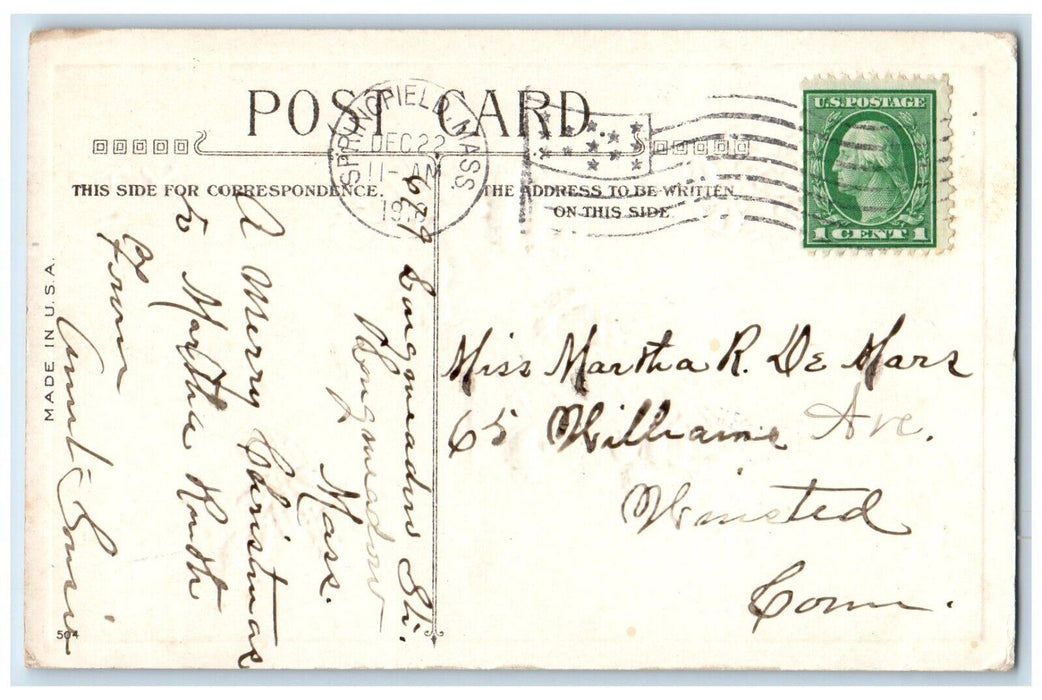 POST CARD
SPRINGFIELD, MASS
DEC 22
11- AM
U.S. POSTAGE
1 CENT 1
THIS SIDE FOR CORRESPONDENCE.
THE ADDRESS TO BE WRITTEN
ON THIS SIDE
MADE IN U.S.A.
504
679 Longmeadow St.
Longmeadow
Mass.
A Merry Christmas
to Martha Ruth
From
Aunt Susie
Miss Martha R. De Mars
65 Williams Ave.
Winsted
Conn.